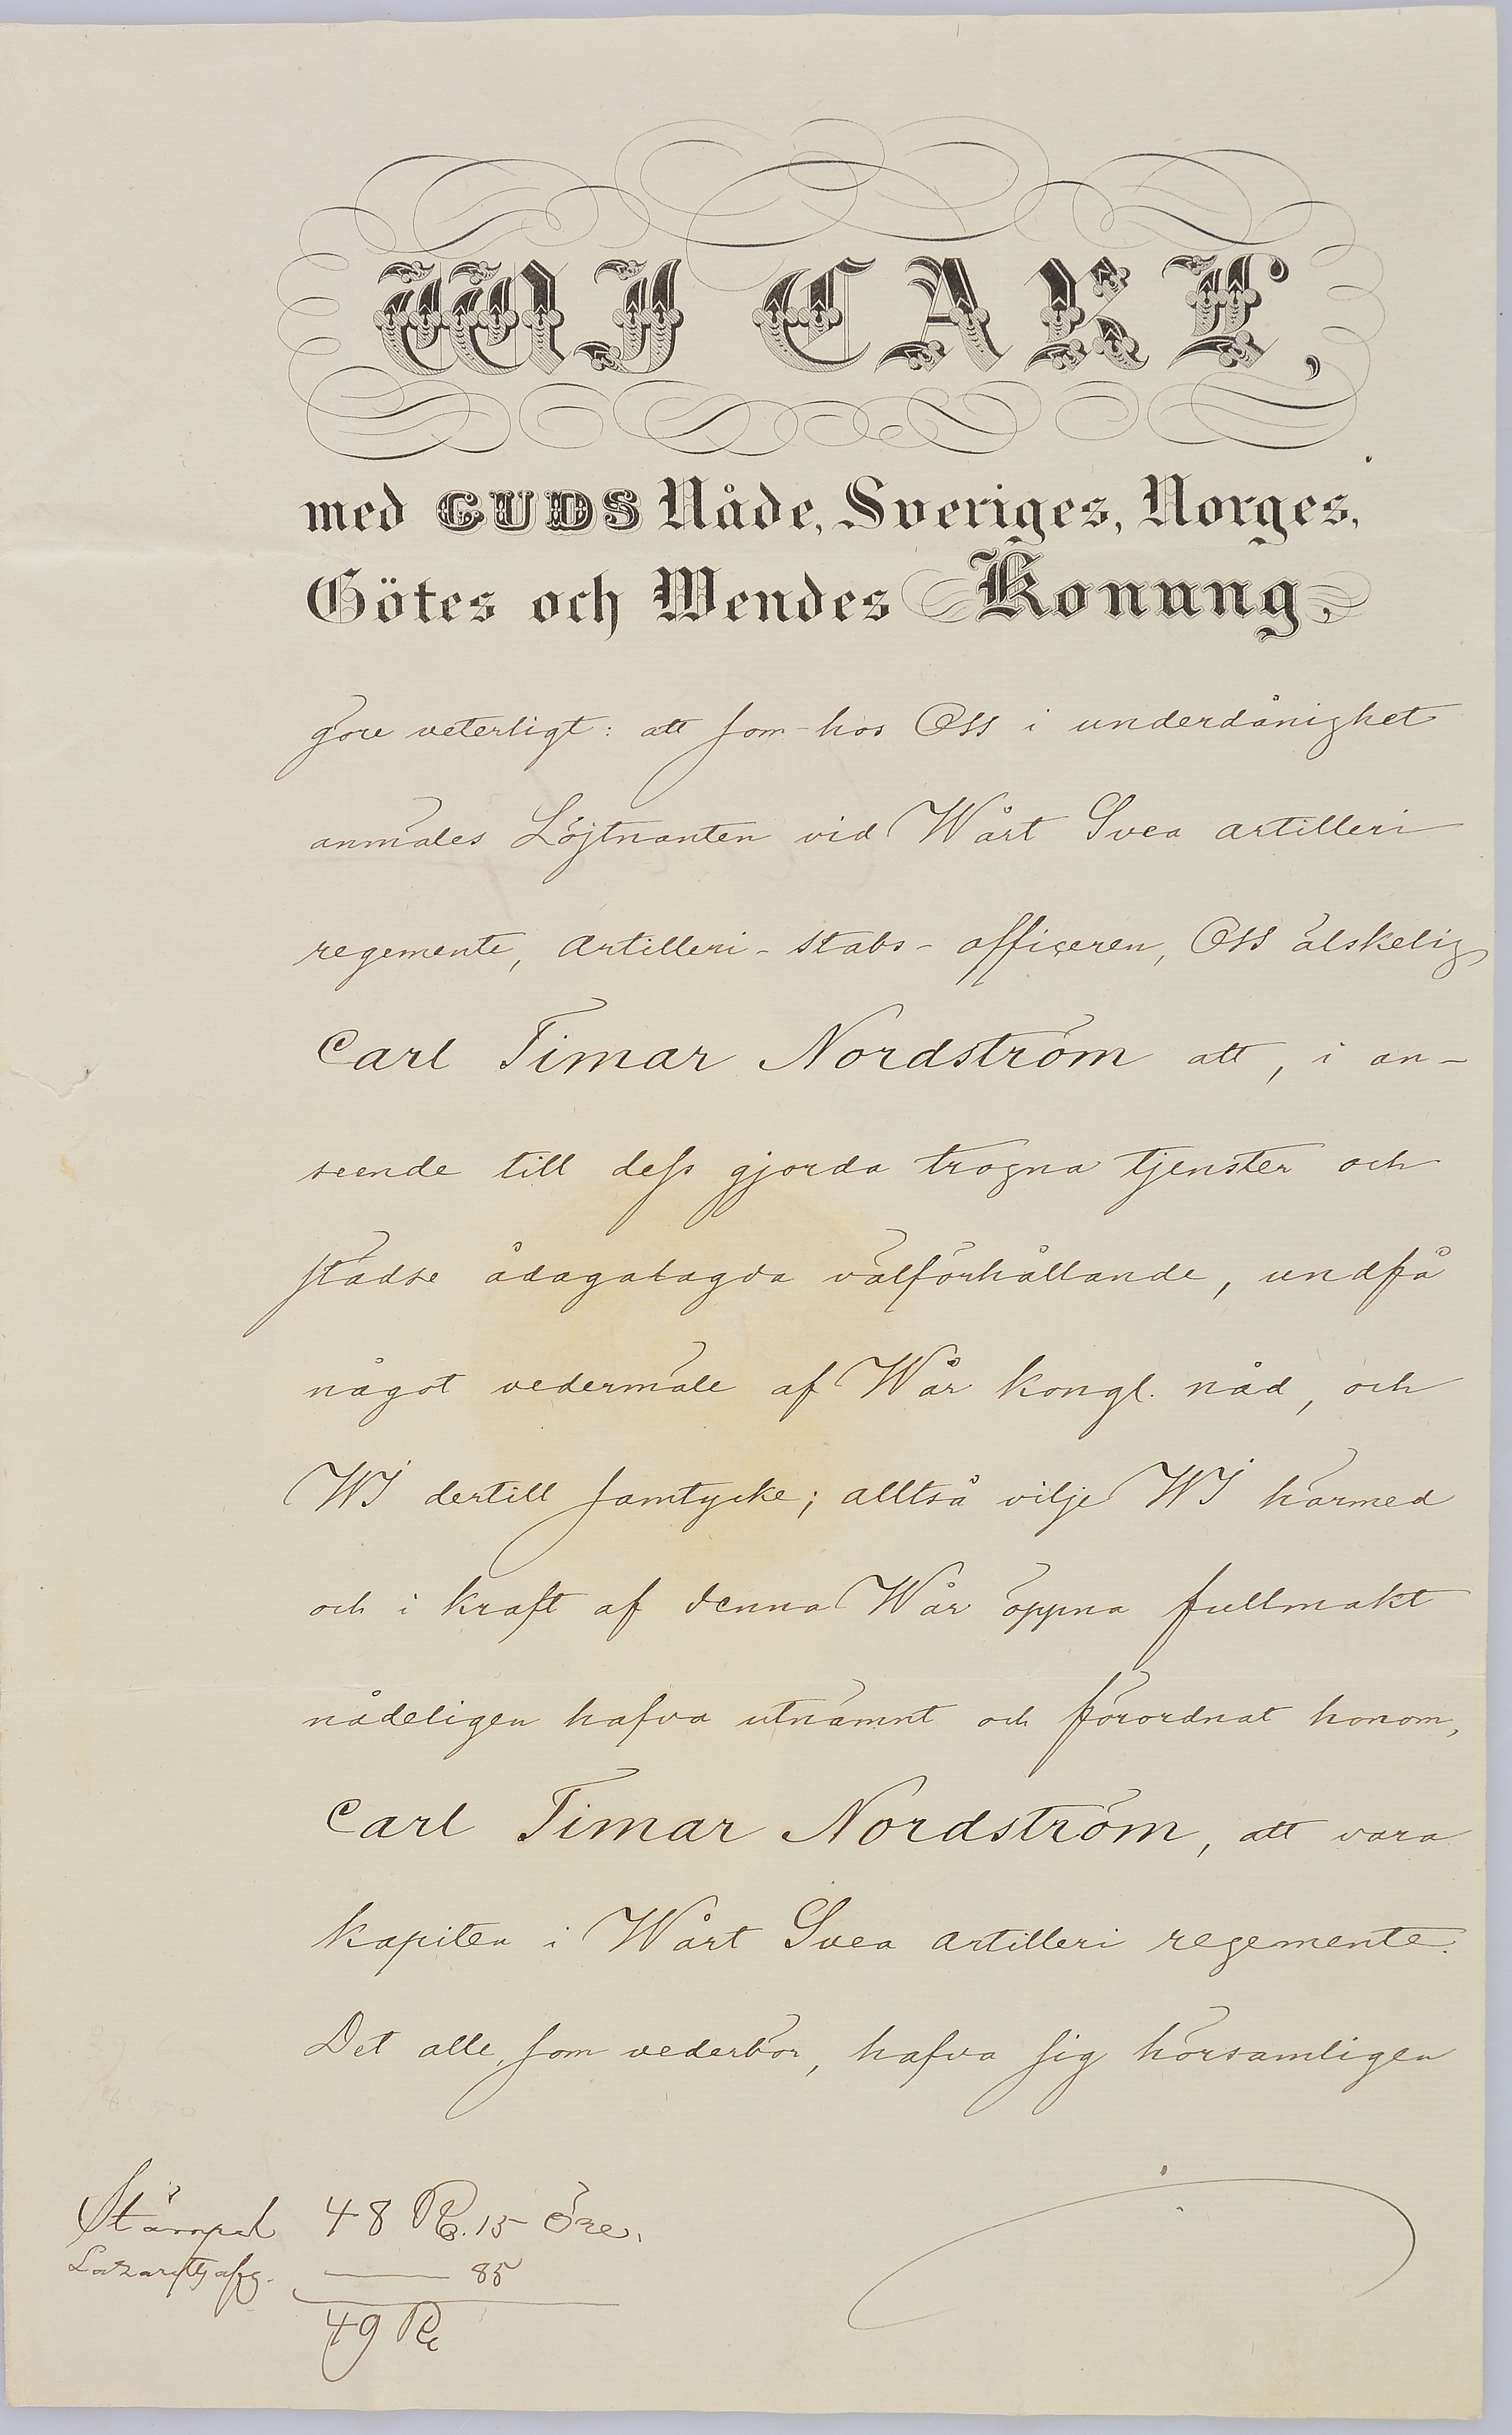 WJ CARL,
med GUDS Nåde, Sveriges, Norges,
Götes och Wendes Konung,
göre veterligt: att som hos Oss i underdånighet
anmäles Löjtnanten vid Wårt Svea artilleri
regemente, Artilleri-stabs-officeren, Oss älskelig
Carl Timar Nordström att, i an-
seende till dess gjorda trogna tjenster och
städse ådagalagda välförhållande, undfå
något vedermäle af Wår kongl. nåd, och
WJ dertill samtycke; alltså vilje WJ härmed
och i kraft af denna Wår öppna fullmakt
nådeligen hafva utnämnt och förordnat honom,
Carl Timar Nordström, att vara
kapiten i Wårt Svea artilleri regemente.
Det alle, som vederbör, hafva sig hörsamligen
Stämpel 48 Rd. 15 Öre.
Lazarettsafg. — 85
49 Rd